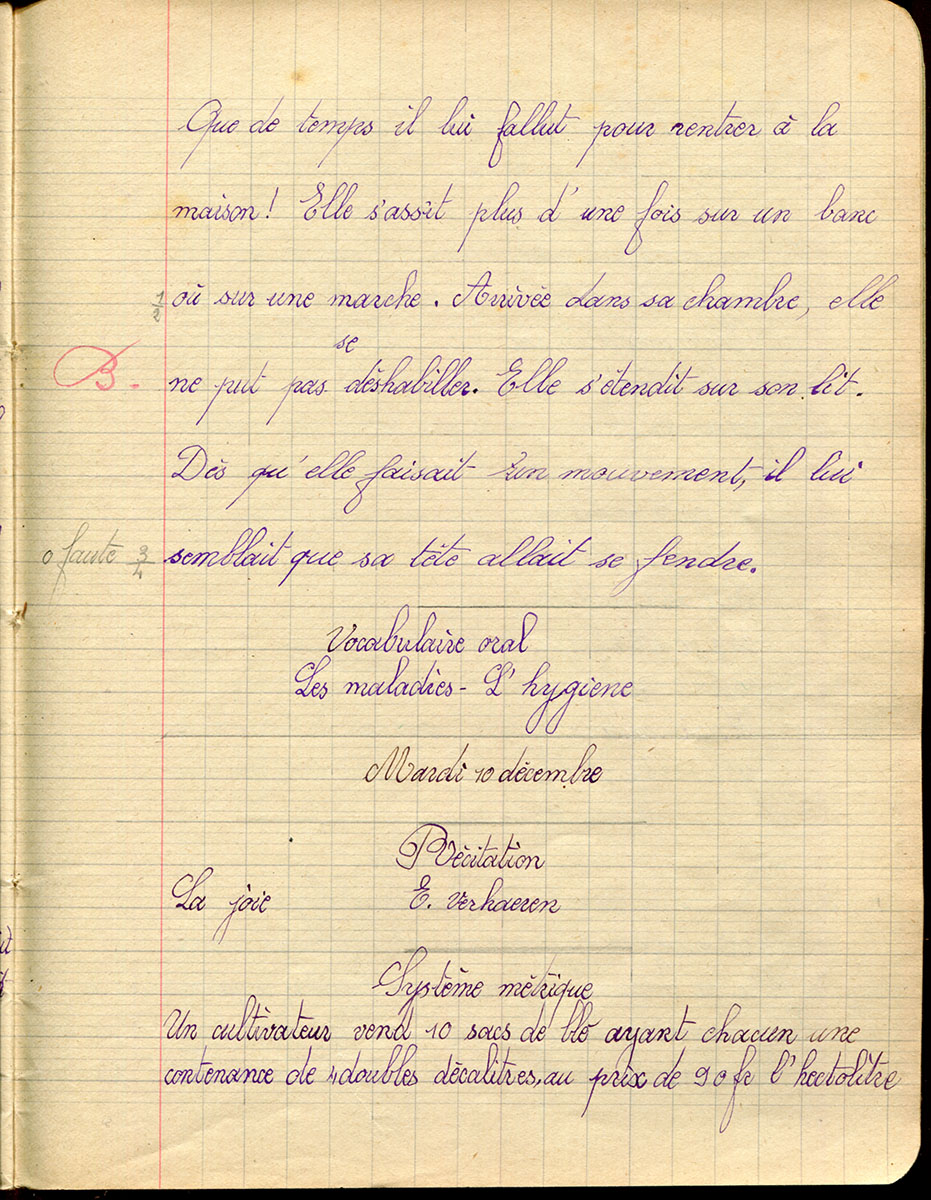 Que de temps il lui fallut pour rentrer à la
maison! Elle s'assit plus d'une fois sur un banc
1/2 où sur une marche. Arrivée dans sa chambre, elle
se
B. ne put pas déshabiller. Elle s'étendit sur son lit.
Dès qu'elle faisait un mouvement, il lui
0 faute 3/4 semblait que sa tête allait se fendre.
Vocabulaire oral
Les maladies - L'hygiene
Mardi 10 décembre
Récitation
La joie E. Verhaeren
Système métrique
Un cultivateur vend 10 sacs de blé ayant chacun une
contenance de 4 doubles décalitres, au prix de 90 fr l'hectolitre